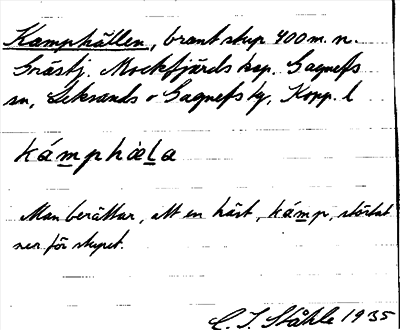 Kamphällen, brant stup 400 m. n.
Gråstj. Mockfjärds ksp. Gagnefs
sn, Leksands o Gagnefs tg, Kopp. l
kámphæLa
Man berättar, att en häst, kámp, störtat
ner för stupet.
C. I. Ståhle 1935